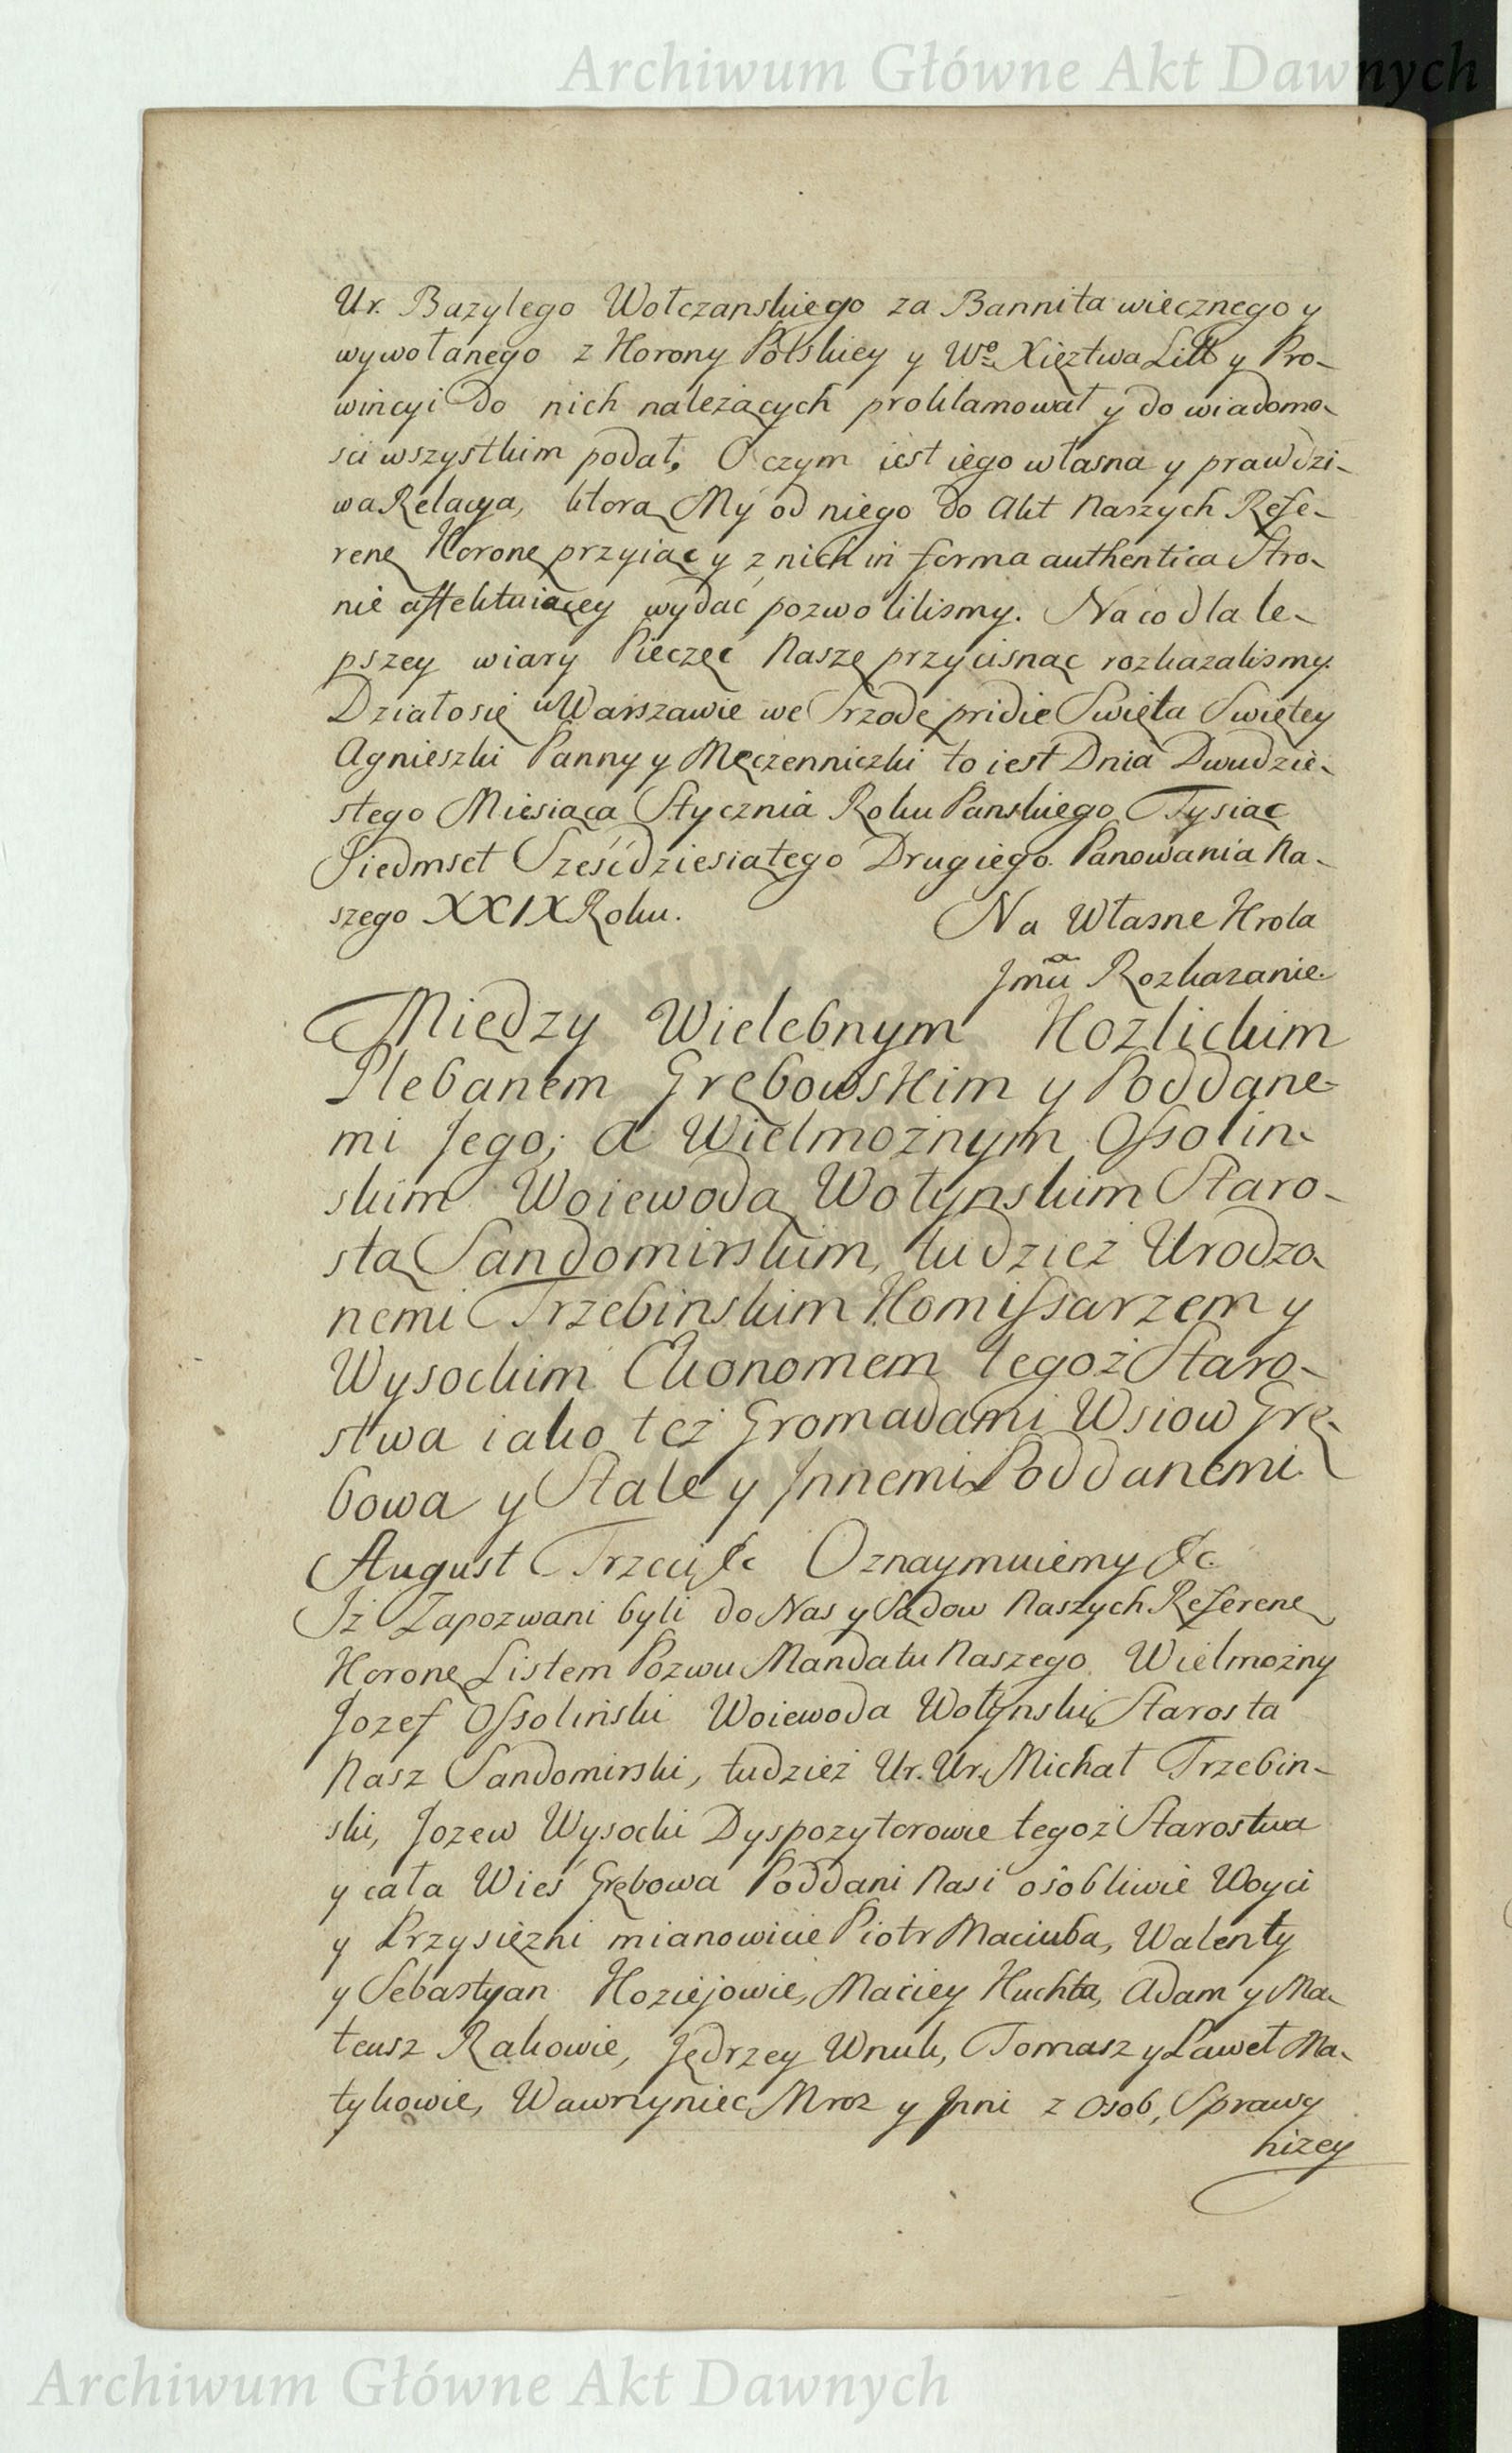 Archiwum Główne Akt Dawnych
Ur. Bazylego Wołczanskiego za Bannita wiecznego y
wywołanego z Korony Polskiey y Wº Xięztwa Litt y Pro-
wincyi do nich należących proklamował y do wiadomo-
sci wszystkim podał, O czym iest iego własna y prawdzi-
wa Relacya, ktorą My od niego do Akt Naszych Refe-
rene Korone przyiąc y z nich in forma authentica Stro-
nie affektuiącey wydać pozwolilismy. Na co dla le-
pszey wiary Pieczęć Naszę przycisnąc rozkazalismy.
Działo się w Warszawie we Srzodę pridie Swięta Swiętey
Agnieszki Panny y Męczenniczki to iest Dnia Dwudzie-
stego Miesiąca Stycznia Roku Panskiego Tysiąc
Siedmset Sześćdziesiątego Drugiego. Panowania Na-
szego XXIX Roku. Na Własne Krola
Jmci Rozkazanie.
Między Wielebnym Kozlickim
Plebanem Grębowskim y Poddane-
mi Jego; a Wielmoznym Ossolin-
skim Woiewodą Wołynskim Staro-
stą Sandomirskim, tudziez Urodzo
nemi Trzebinskim Komissarzem y
Wysockim Ekonomem tegoż Staro-
stwa iako też Gromadami Wsiow Grę-
bowa y Stale y Jnnemi Poddanemi.
August Trzeci &c Oznaymuiemy &c.
Jż Zapozwani byli do Nas y Sądow Naszych Referene
Korone Listem Pozwu Mandatu Naszego Wielmożny
Jozef Ossoliński Woiewoda Wołynski, Starosta
Nasz Sandomirski, tudzież Ur. Ur. Michał Trzebin-
ski, Jozew Wysocki Dyspozytorowie tegoż Starostwa
y cała Wieś Grębowa Poddani Nasi osobliwie Woyci
y Przysiężni mianowicie Piotr Maciuba, Walenty
y Sebastyan Koziejowie, Maciey Kuchta, Adam y Ma-
teusz Rakowie, Jędrzey Wnuk, Tomasz y Paweł Ma-
tykowie, Wawrzyniec Mroz y Jnni z osob, Sprawy
niżey
Archiwum Główne Akt Dawnych